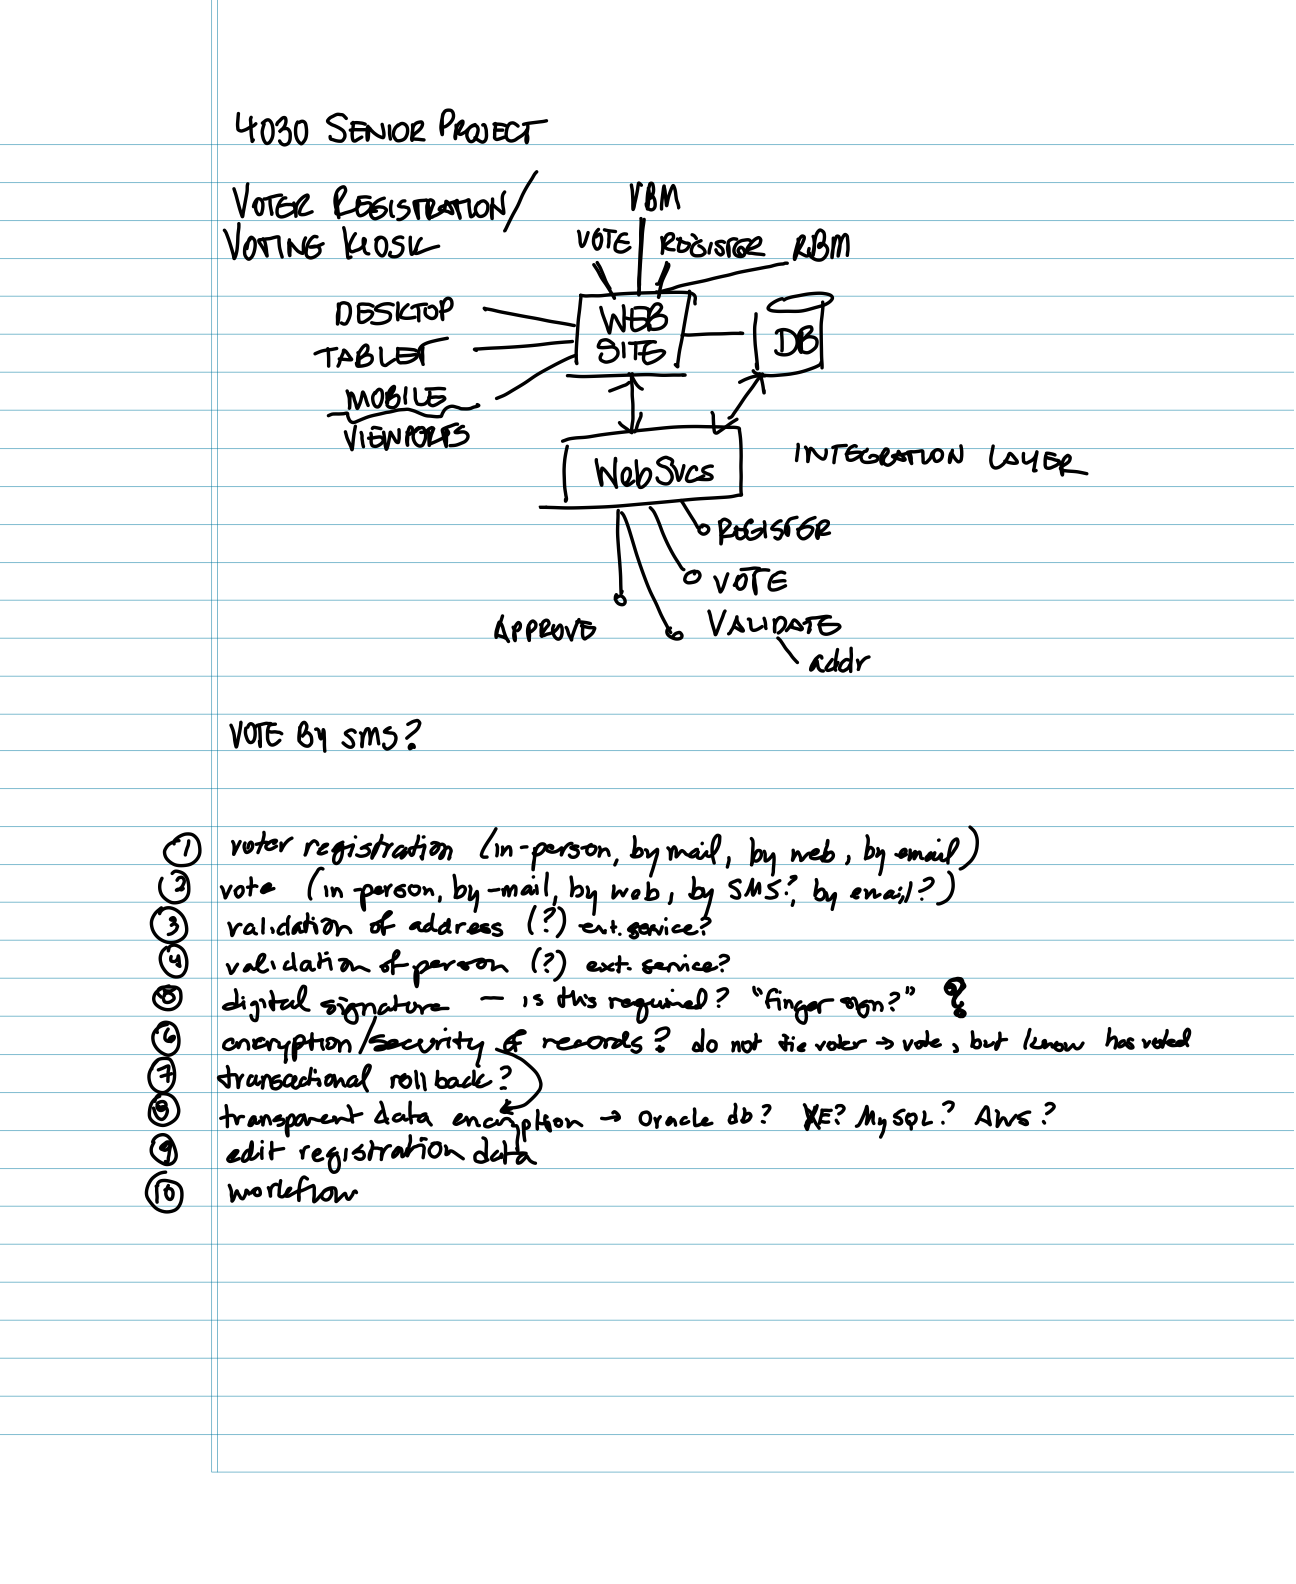 4030 SENIOR PROJECT
VOTER REGISTRATION/
VOTING KIOSK
VBM
VOTE
REGISTER
RBM
DESKTOP
TABLET
MOBILE
VIEWPORTS
WEB
SITE
DB
WebSvcs
INTEGRATION LAYER
REGISTER
VOTE
VALIDATE
addr
APPROVE
VOTE By SMS?
1 voter registration (in-person, by mail, by web, by email)
2 vote (in person, by-mail, by web, by SMS?, by email?)
3 validation of address (?) ext. service?
4 validation of person (?) ext. service?
5 digital signature — is this required? "finger sign?" ?
6 encryption/security of records? do not tie voter → vote, but know has voted
7 transactional rollback?
8 transparent data encryption → Oracle db? XE? MySQL? AWS?
9 edit registration data
10 workflow